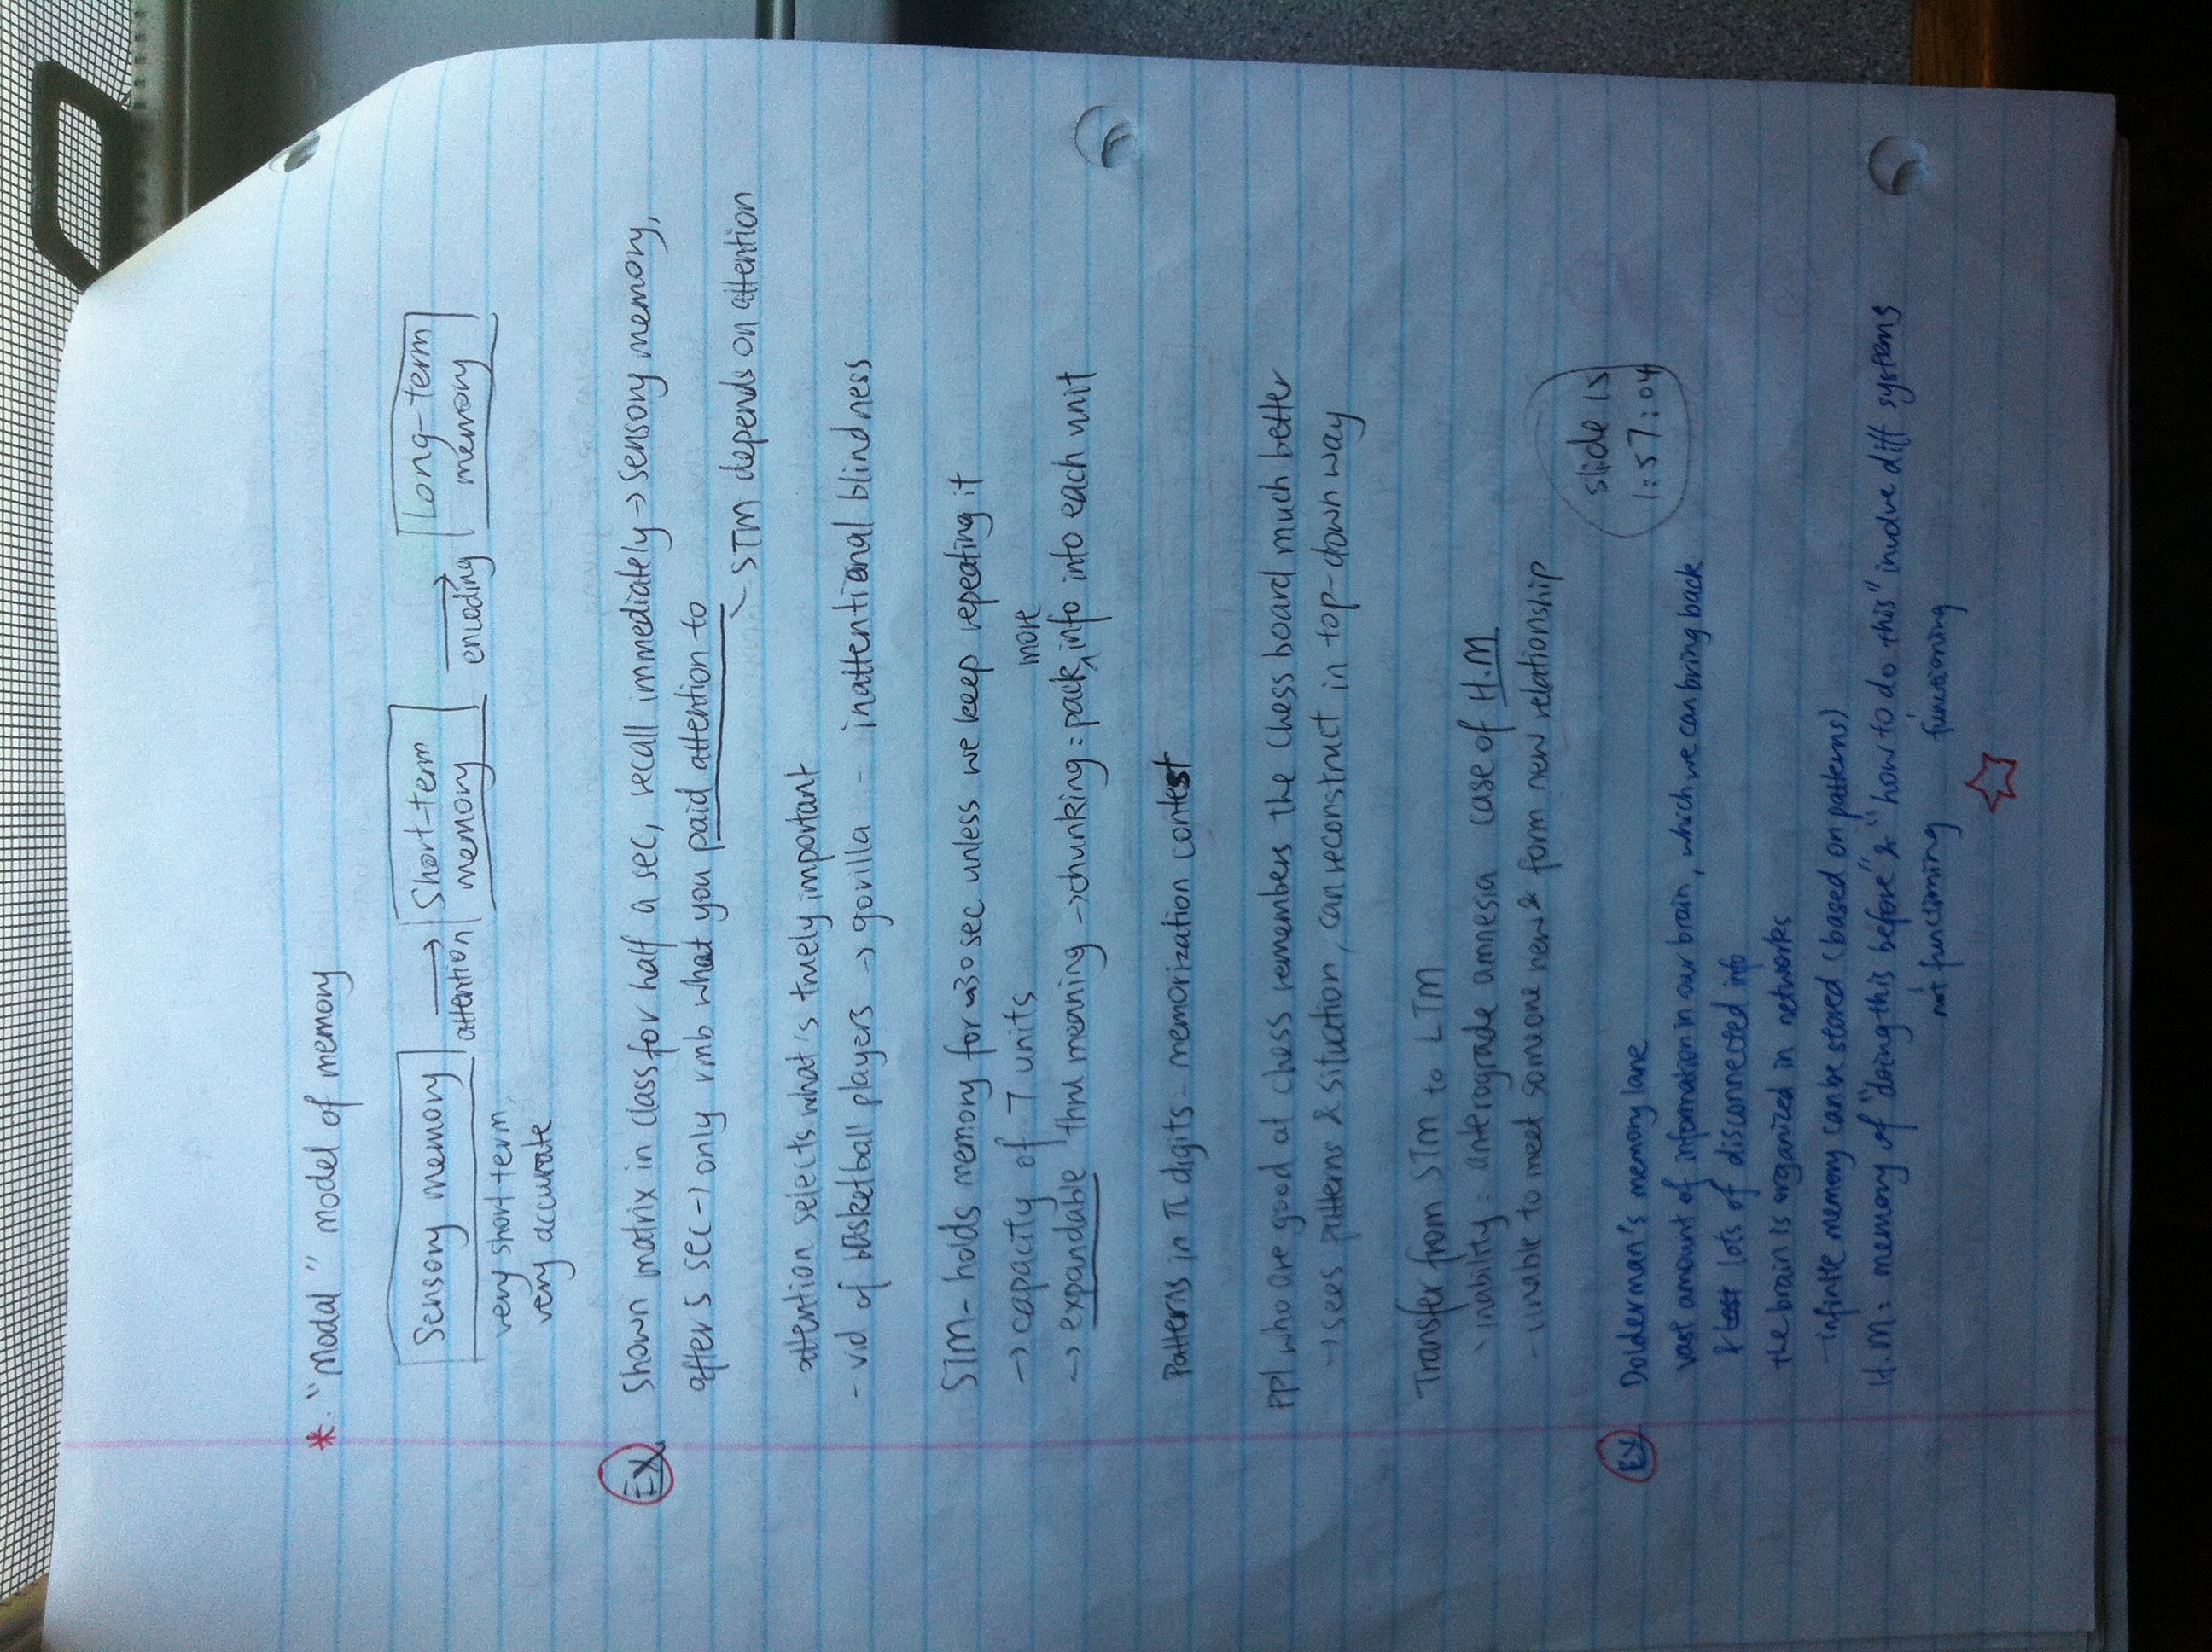 * "Modal" model of memory
Sensory memory → attention Short-term memory → encoding Long-term memory
very short term
very accurate
EX Shown matrix in class for half a sec, recall immediately → sensory memory,
after 5 sec → only rmb what you paid attention to
↳ STM depends on attention
attention selects what's truely important
- vid of basketball players → gorilla - inattentional blindness
STM - holds memory for ~30 sec unless we keep repeating it
→ capacity of 7 units
↳ expandable thru meaning → chunking = pack more info into each unit
Patterns in π digits - memorization contest
ppl who are good at chess remembers the chess board much better
→ sees patterns & situation, can reconstruct in top-down way
Transfer from STM to LTM
· inability: anterograde amnesia case of H.M
- unable to meet someone new & form new relationship
slide 15
1:57:04
EX Dolderman's memory lane
vast amount of information in our brain, which we can bring back
& lots of disconnected info
the brain is organized in networks
- infinite memory can be stored (based on patterns)
H.M = memory of "doing this before" & "how to do this" involve diff systems
not functioning functioning